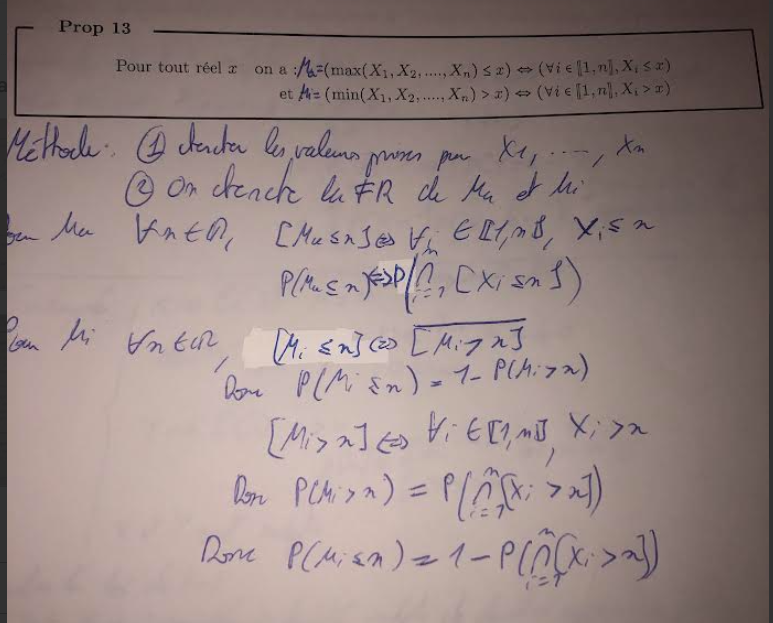 Prop 13
Pour tout réel x on a : Ma=(max(X₁, X₂, ...., Xₙ) ≤ x) ⇔ (∀i ∈ ⟦1, n⟧, Xᵢ ≤ x)
et Mi= (min(X₁, X₂, ...., Xₙ) > x) ⇔ (∀i ∈ ⟦1, n⟧, Xᵢ > x)
Méthode: ① chercher les valeurs prises par X1, ----, Xn
② On cherche la FR de Ma et Mi
Pour Ma ∀x∈ℝ, [Ma≤x] ⇔ ∀i ∈ ⟦1,n⟧, Xi ≤ x
P(Ma≤x) ⇔ P(⋂ⁿᵢ₌₁ [Xi ≤x])
Pour Mi ∀x∈ℝ, [Mi ≤x] ⇔ [̅M̅i̅ ̅>̅ ̅x̅]̅
Donc P(Mi ≤x) = 1- P(Mi>x)
[Mi>x] ⇔ ∀i ∈ ⟦1,n⟧, Xi >x
Donc P(Mi>x) = P(⋂ⁿᵢ₌₁[Xi >x])
Donc P(Mi≤x) = 1-P(⋂ⁿᵢ₌₁[Xi>x])